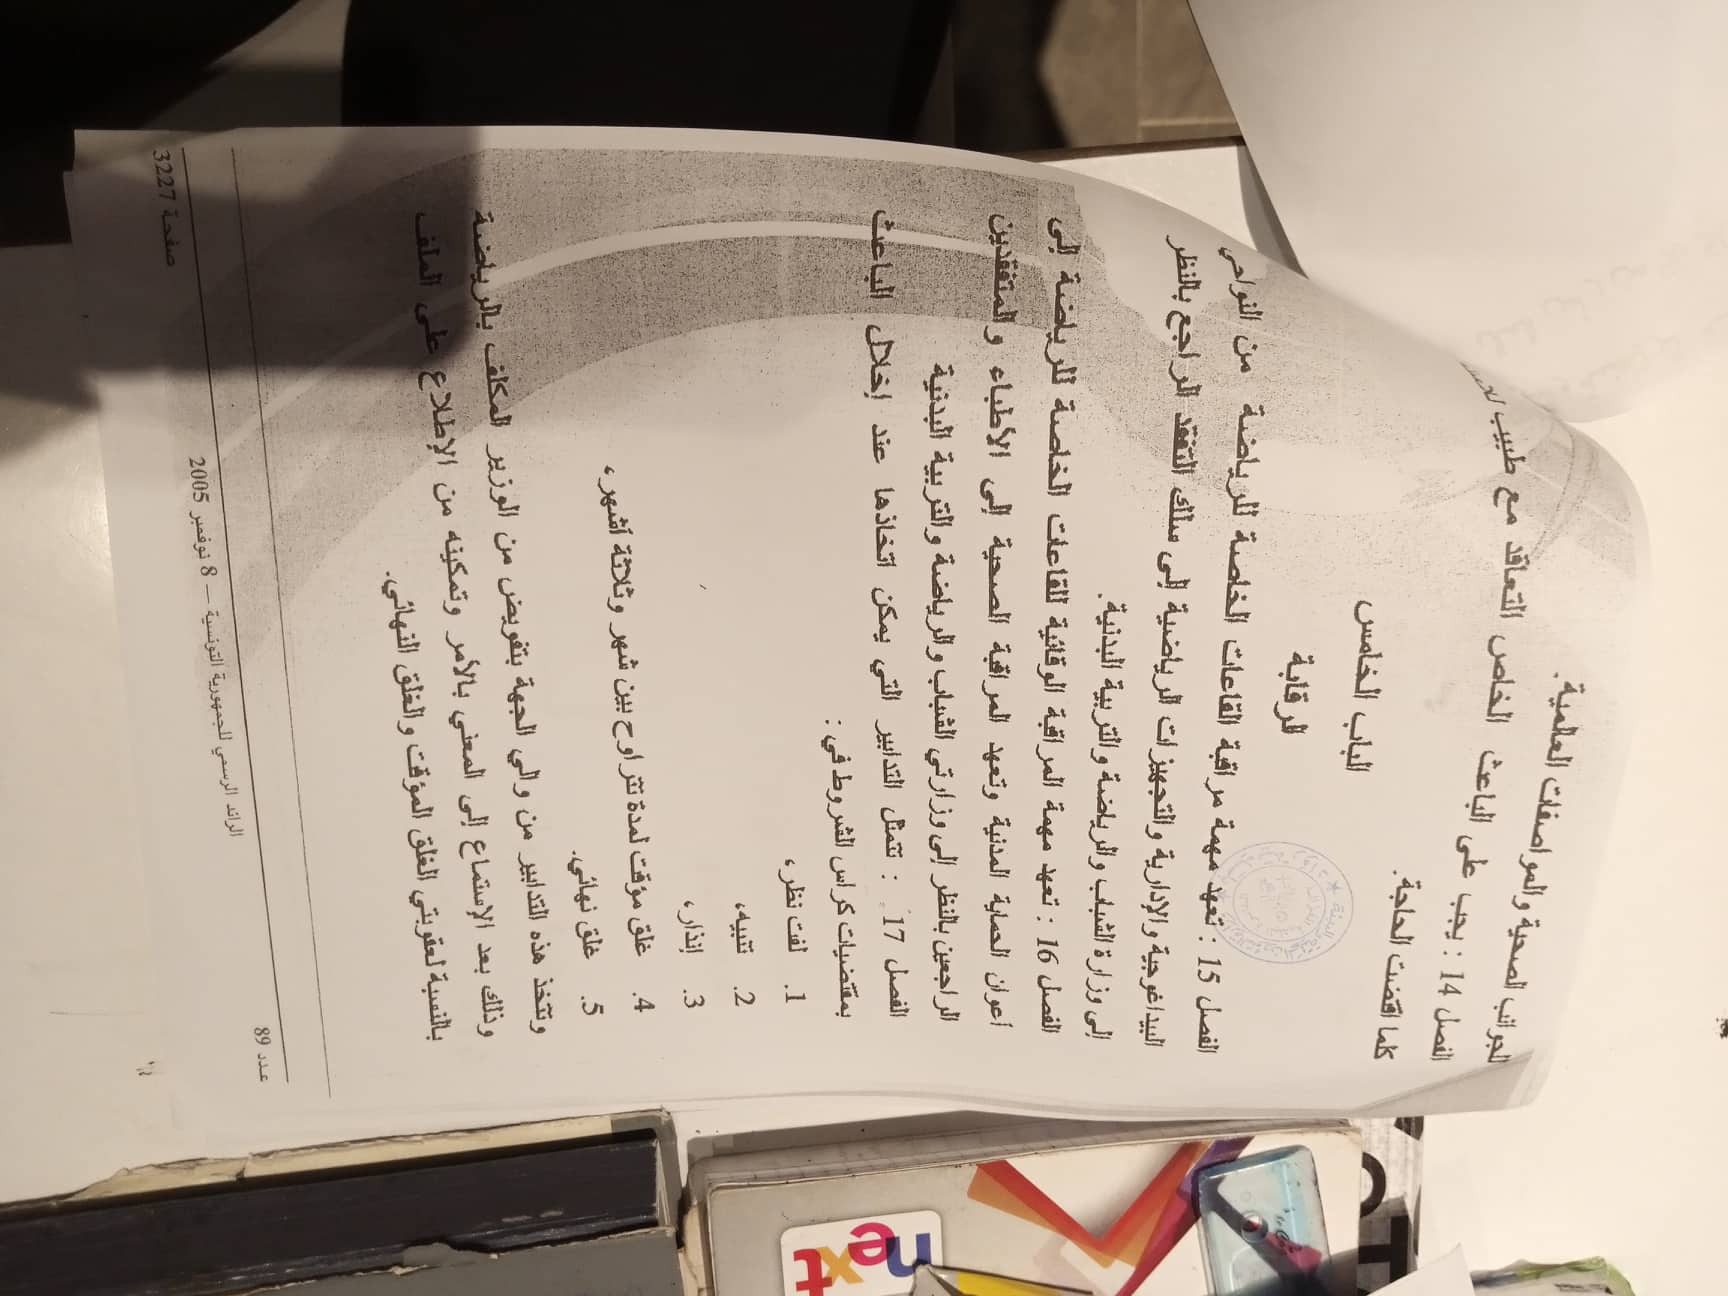 الجوانب الصحية والمواصفات العالمية.
الفصل 14 : يجب على الباعث الخاص التعاقد مع طبيب
كلما اقتضت الحاجة.
الباب الخامس
الرقابة
الفصل 15 : تعهد مهمة مراقبة القاعات الخاصة للرياضة من النواحي
البيداغوجية والإدارية والتجهيزات الرياضية إلى سلك التفقد الراجع بالنظر
إلى وزارة الشباب والرياضة والتربية البدنية.
الفصل 16 : تعهد مهمة المراقبة الوقائية للقاعات الخاصة للرياضة إلى
أعوان الحماية المدنية وتعهد المراقبة الصحية إلى الأطباء والمتفقدين
الراجعين بالنظر إلى وزارتي الشباب والرياضة والتربية البدنية
الفصل 17 : تتمثل التدابير التي يمكن اتخاذها عند إخلال الباعث
بمقتضيات كراس الشروط في :
1. لفت نظر،
2. تنبيه،
3. إنذار،
4. غلق مؤقت لمدة تتراوح بين شهر وثلاثة أشهر،
5. غلق نهائي.
وتتخذ هذه التدابير من والي الجهة بتفويض من الوزير المكلف بالرياضة
وذلك بعد الإستماع إلى المعني بالأمر وتمكينه من الإطلاع على الملف
بالنسبة لعقوبتي الغلق المؤقت والغلق النهائي.
عدد 89 الرائد الرسمي للجمهورية التونسية – 8 نوفمبر 2005 صفحة 3227
next